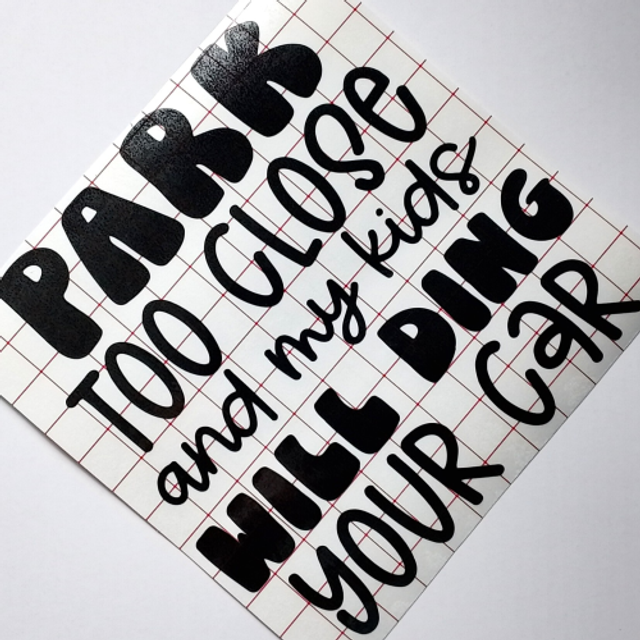 PARK
TOO CLOSe
and my kids
WILL DING
YOUR CaR